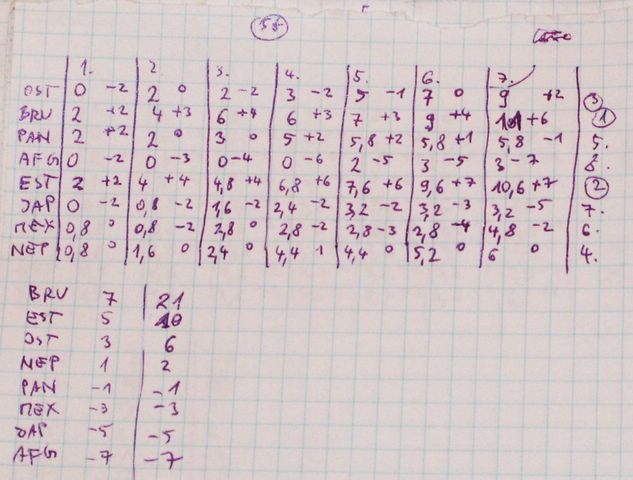 55
1. 2. 3. 4. 5. 6. 7.
OST 0 -2 2 0 2 -2 3 -2 5 -1 7 0 9 +2 3
BRU 2 +2 4 +3 6 +4 6 +3 7 +3 9 +4 11 +6 1
PAN 2 +2 2 0 3 0 5 +2 5,8 +2 5,8 +1 5,8 -1 5.
AFG 0 -2 0 -3 0 -4 0 -6 2 -5 3 -5 3 -7 8.
EST 2 +2 4 +4 4,8 +4 6,8 +6 7,6 +6 9,6 +7 10,6 +7 2
JAP 0 -2 0,8 -2 1,6 -2 2,4 -2 3,2 -2 3,2 -3 3,2 -5 7.
MEX 0,8 0 0,8 -2 2,8 0 2,8 -2 2,8 -3 2,8 -4 4,8 -2 6.
NEP 0,8 0 1,6 0 2,4 0 4,4 1 4,4 0 5,2 0 6 0 4.
BRU 7 21
EST 5 10
OST 3 6
NEP 1 2
PAN -1 -1
MEX -3 -3
JAP -5 -5
AFG -7 -7